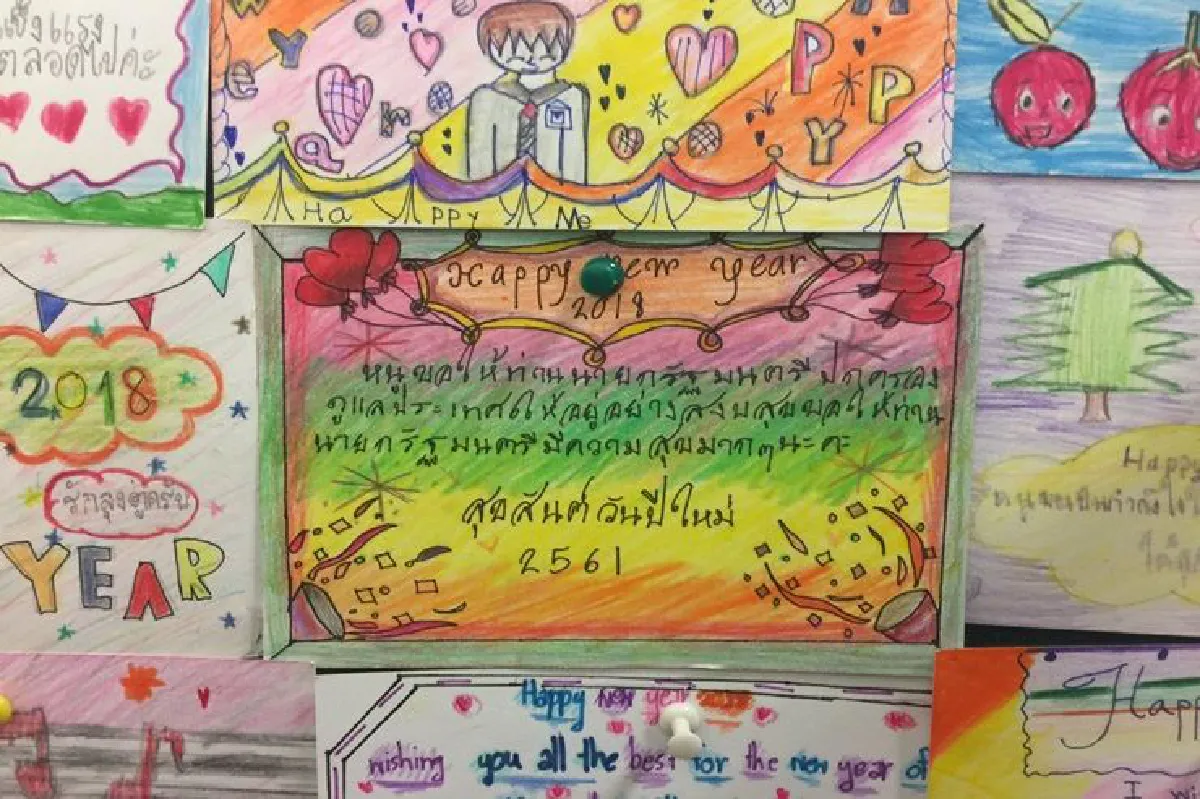 แข็งแรง
ตลอดไปค่ะ
HAPPY
Ha ppy Me
Happy New Year
2018
หนูขอให้ท่านนายกรัฐมนตรี ปกครอง
ดูแลประเทศให้อยู่อย่างสงบสุขขอให้ท่าน
นายกรัฐมนตรีมีความสุขมากๆนะคะ
สุขสันต์วันปีใหม่
2561
2018
รักลุงตู่ครับ
YEAR
Happy
Happy New year
wishing you all the best for the new year of
Happ
I wi